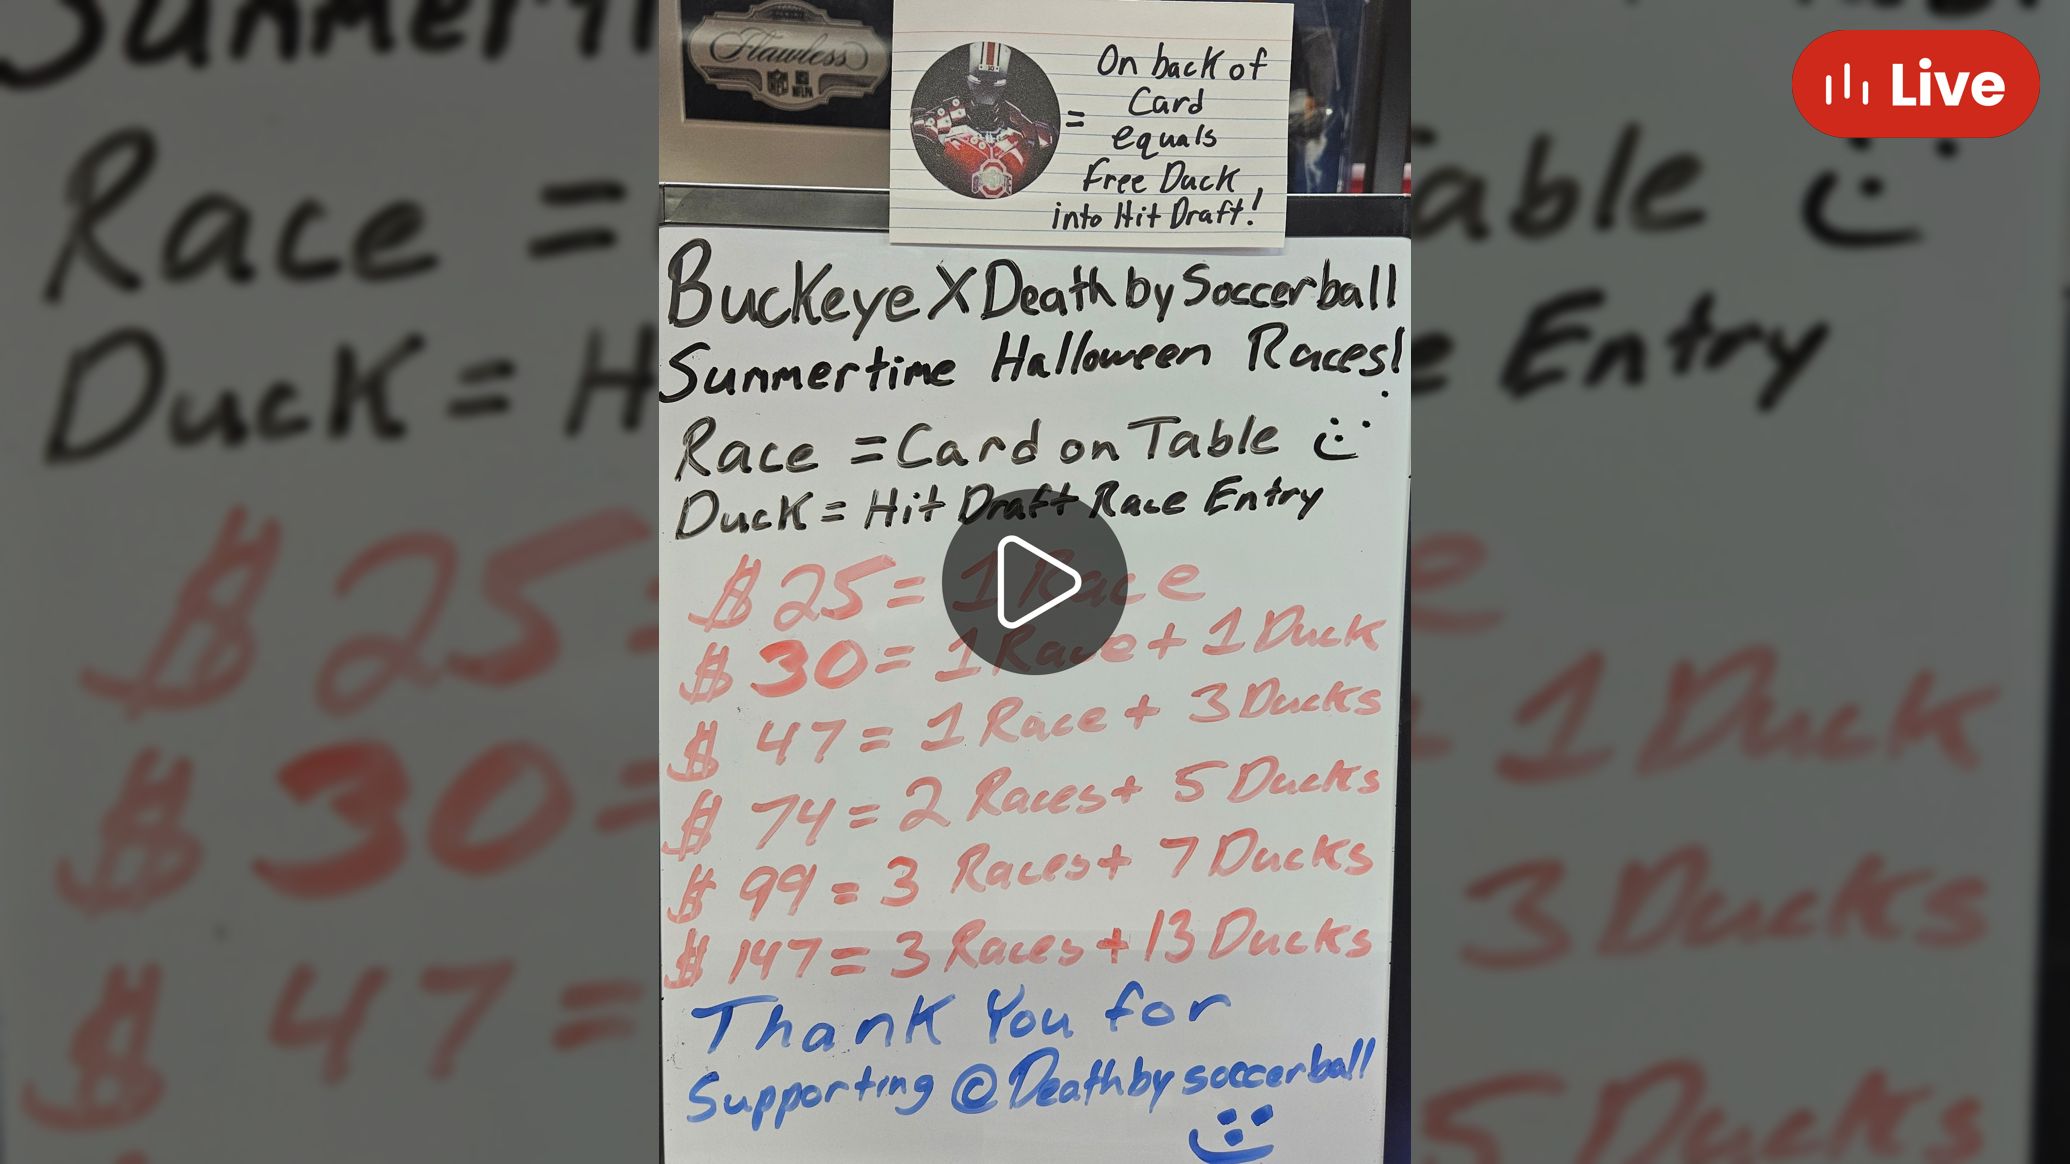 Flawless
NFL NFLPA
On back of
Card
= equals
Free Duck
into Hit Draft!
Live
Buckeye X Death by Soccerball
Summertime Halloween Races!
Race = Card on Table
Duck = Hit Draft Race Entry
$25 = 1 Race
$30 = 1 Race + 1 Duck
$47 = 1 Race + 3 Ducks
$74 = 2 Races + 5 Ducks
$99 = 3 Races + 7 Ducks
$147 = 3 Races + 13 Ducks
Thank You for
Supporting @Deathbysoccerball